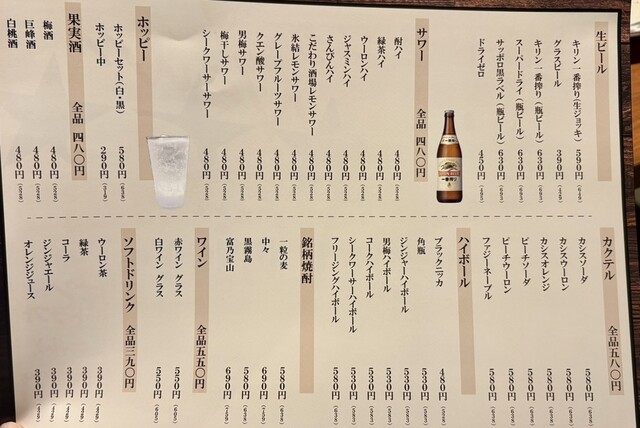 生ビール
キリン一番搾り(生ジョッキ) 590円
グラスビール 390円
キリン一番搾り(瓶ビール) 630円
スーパードライ(瓶ビール) 630円
サッポロ黒ラベル(瓶ビール) 630円
ドライゼロ 450円
サワー 全品 四八〇円
酎ハイ 480円
緑茶ハイ 480円
ウーロンハイ 480円
ジャスミンハイ 480円
さんぴんハイ 480円
こだわり酒場レモンサワー 480円
氷結レモンサワー 480円
グレープフルーツサワー 480円
クエン酸サワー 480円
男梅サワー 480円
梅干しサワー 480円
シークワーサーサワー 480円
ホッピー
ホッピーセット(白・黒) 580円
ホッピー中 290円
果実酒 全品 四八〇円
梅酒 480円
巨峰酒 480円
白桃酒 480円
カクテル 全品五八〇円
カシスソーダ 580円
カシスウーロン 580円
カシスオレンジ 580円
ピーチソーダ 580円
ピーチウーロン 580円
ファジーネーブル 580円
ハイボール
ブラックニッカ 480円
角瓶 530円
ジンジャーハイボール 530円
男梅ハイボール 530円
コークハイボール 530円
シークワーサーハイボール 530円
フリージングハイボール 580円
銘柄焼酎
一粒の麦 580円
中々 690円
黒霧島 580円
富乃宝山 690円
ワイン 全品五五〇円
赤ワイン グラス 550円
白ワイン グラス 550円
ソフトドリンク 全品三九〇円
ウーロン茶 390円
緑茶 390円
コーラ 390円
ジンジャエール 390円
オレンジジュース 390円